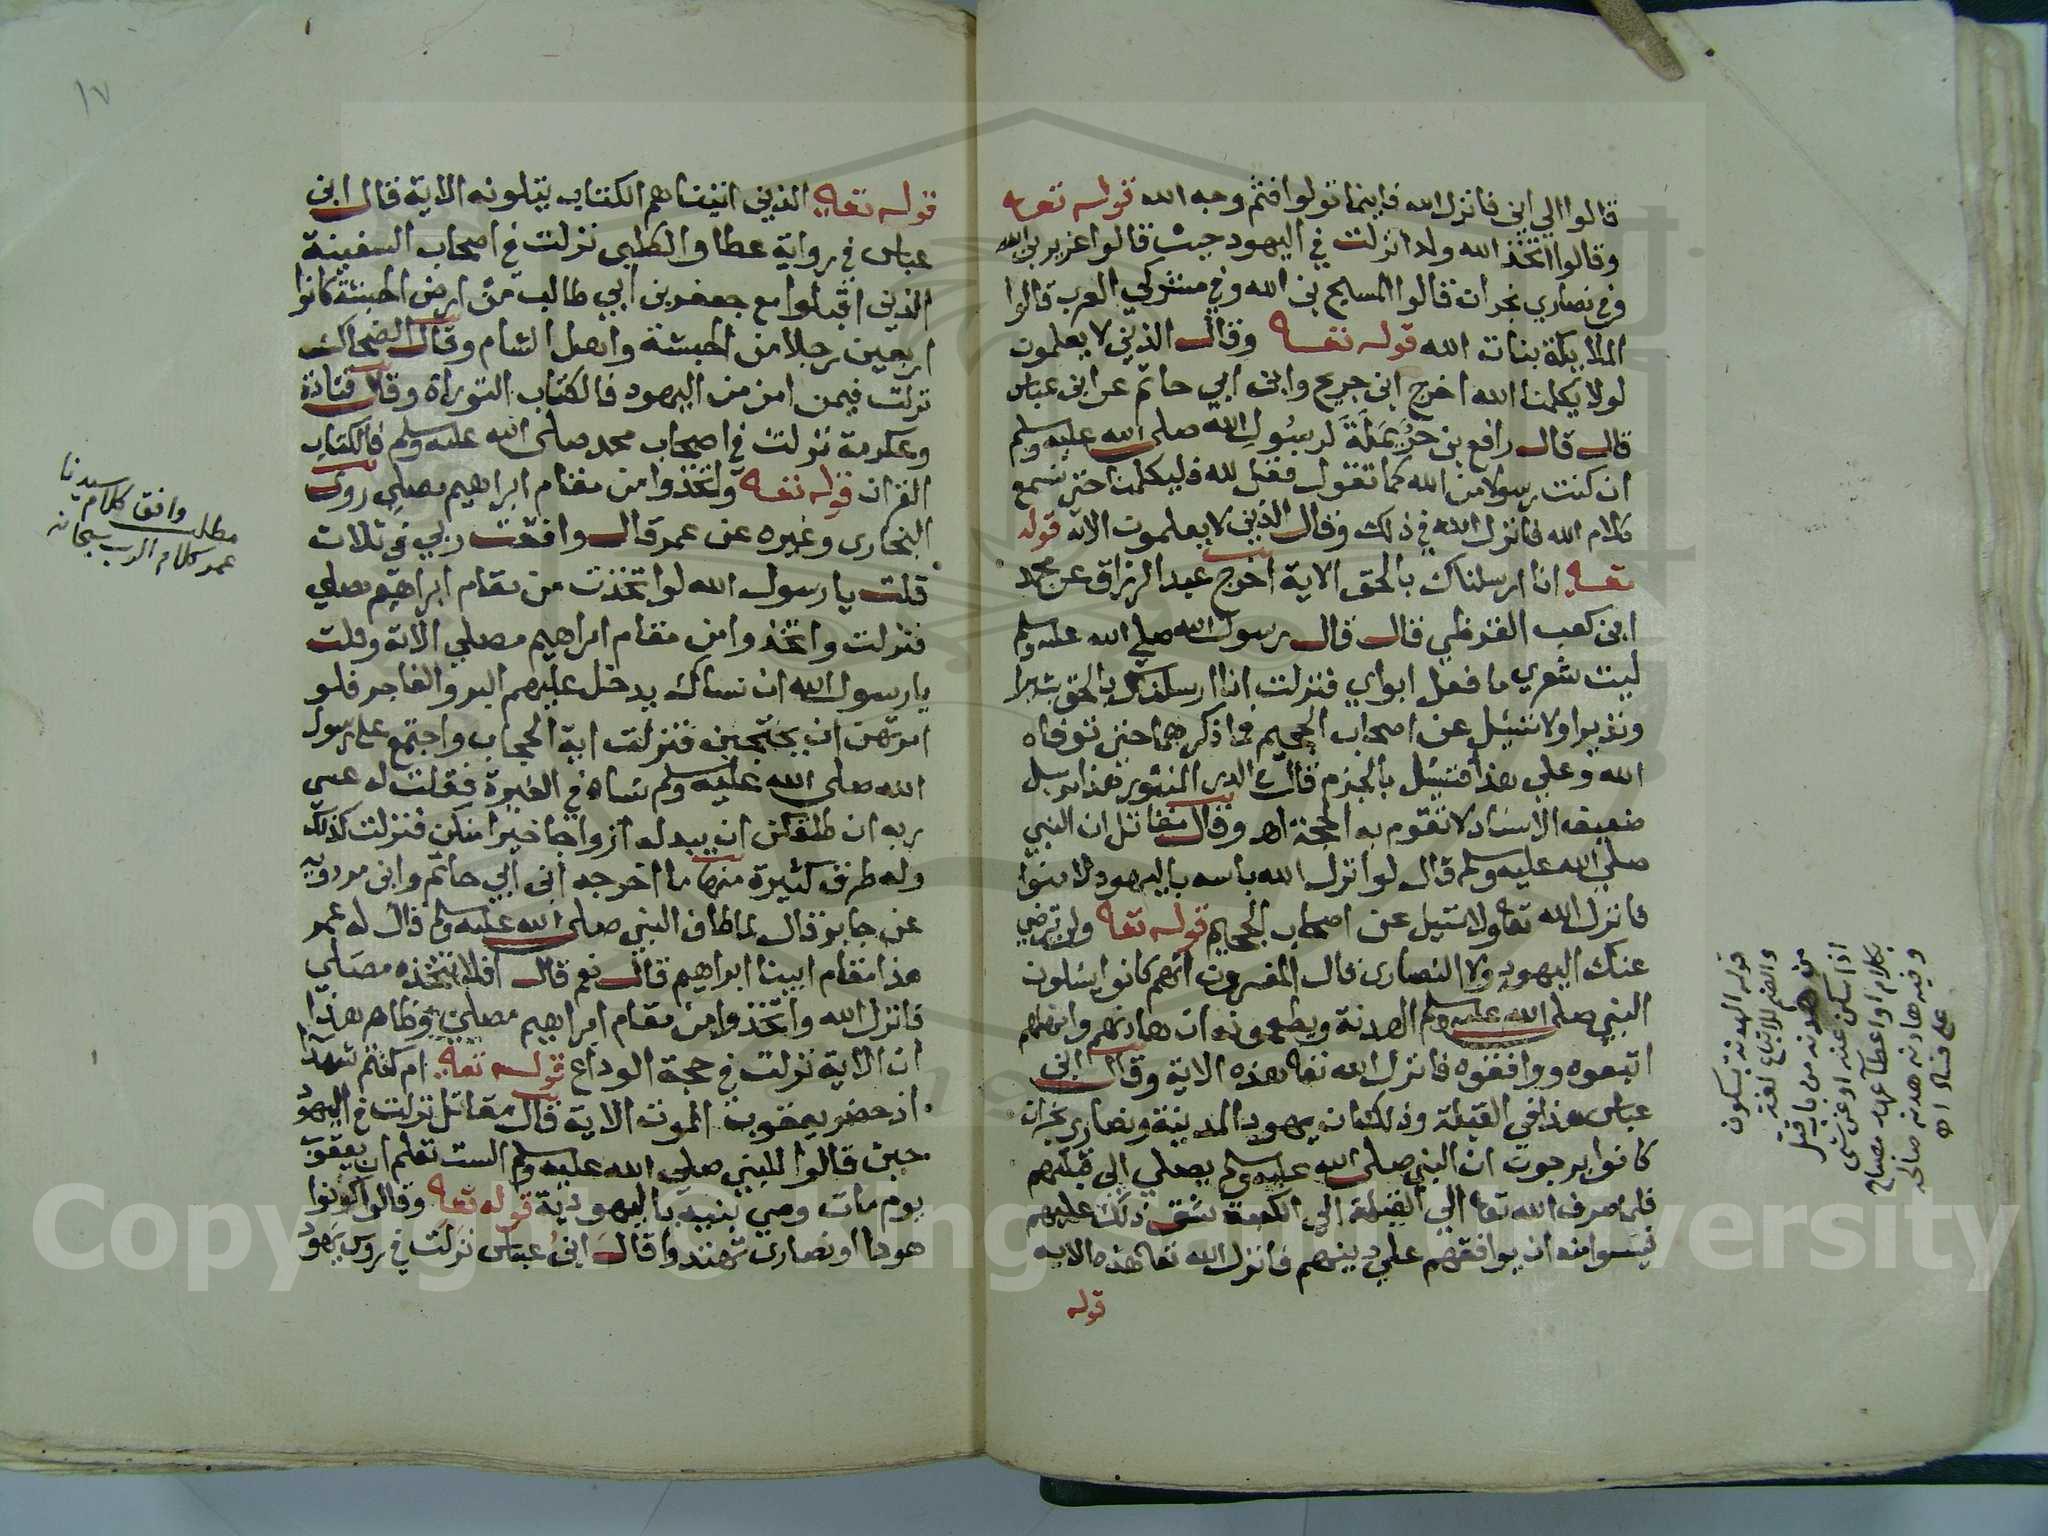 قالوا الي اين فانزل الله فاينما تولوا فثم وجه الله قوله تعه
وقالوا اتخذ الله ولدا نزلت في اليهود حيث قالوا عزير بن الله
وفي نصاري نجران قالوا المسيح بن الله وفي مشركي العرب قالوا
الملايكة بنات الله قوله تعه وقال الذين لا يعلمون
لولا يكلمنا الله اخرج ابن جريج وابن ابي حاتم عن ابن عباس
قال قال رافع بن حزيمله لرسول الله صلى الله عليه وسلم
ان كنت رسولا من الله كما تقول فقل لله فليكلمنا حتى نسمع
كلام الله فانزل الله في ذلك وقال الذين لا يعلمون الاية قوله
تعه انا ارسلناك بالحق الاية اخرج عبد الرزاق عن محمد
ابن كعب القرظي قال قال رسول الله صلي الله عليه وسلم
ليت شعري ما فعل ابواي فنزلت انا ارسلناك بالحق بشيرا
ونذيرا ولا تسئل عن اصحاب الجحيم فما ذكرهما حتى توفاه
الله وعلي هذا فتسئل بالجزم قال في الدر المنثور هذا مرسل
ضعيف الاسناد لا تقوم به الحجة اه وقال مقاتل ان النبي
صلى الله عليه وسلم قال لو انزل الله باسه باليهود لامنوا
فانزل الله تعه ولا تسئل عن اصحاب الجحيم قوله تعه ولن ترضي
عنك اليهود ولا النصارى قال المفسرون انهم كانوا يسئلون
النبي صلى الله عليه وسلم الهدنة ويطمعونه ان هادنهم وامهلهم
اتبعوه ووافقوه فانزل الله تعه هذه الاية وقال ابن
عباس هذا في القبلة وذلك ان يهود المدينة ونصارى نجران
كانوا يرجون ان النبي صلى الله عليه وسلم يصلي الي قبلتهم
فلما صرف الله تعه القبلة الي الكعبة شق ذلك عليهم
فيئسوا منه ان يوافقهم علي دينهم فانزل الله تعه هذه الاية
قوله
قوله الهدنة بسكون
والضم للاتباع لغة
من هدنه من باب قتل
اذا سكن عنه او عن شى
بكلام او اعطا عهد مصباح
وفيه هادنه هدنه صالحه
قوله تعه الذين اتيناهم الكتاب يتلونه الاية قال ابن
عباس في رواية عطا والكلبى نزلت في اصحاب السفينة
الذين اقبلوا مع جعفر بن ابي طالب من ارض الحبشة كانوا
اربعين رجلا من الحبشة واهل الشام وقال الضحاك
نزلت فيمن امن من اليهود فالكتاب التوراة وقال قتادة
وعكرمة نزلت في اصحاب محمد صلى الله عليه وسلم فالكتاب
القران قوله تعه واتخذوا من مقام ابراهيم مصلي روى
البخارى وغيره عن عمر قال وافقت ربي في ثلاث
قلت يا رسول الله لو اتخذت من مقام ابراهيم مصلي
فنزلت واتخذوا من مقام ابراهيم مصلي الاية وقلت
يا رسول الله ان نساك يدخل عليهم البر والفاجر فلو
امرتهن ان يحتجبن فنزلت اية الحجاب واجتمع على رسول
الله صلى الله عليه وسلم نساه في الغيرة فقلت له عسى
ربه ان طلقكن ان يبدله ازواجا خيرا منكن فنزلت كذلك
وله طرق كثيرة منها ما اخرجه ابن ابي حاتم وابن مردويه
عن جابر قال لما طاف النبي صلى الله عليه وسلم قال له عمر
هذا مقام ابينا ابراهيم قال نعم قال افلا نتخذه مصلي
فانزل الله واتخذوا من مقام ابراهيم مصلي وظاهر هذا
ان الاية نزلت في حجة الوداع قوله تعه ام كنتم شهدا
اذ حضر يعقوب الموت الاية قال مقاتل نزلت في اليهود
حين قالوا للنبي صلى الله عليه وسلم الست تعلم ان يعقوب
يوم مات وصي بنيه باليهودية قوله تعه وقالوا كونوا
هودا او نصارى تهتدوا قال ابن عباس نزلت في روس يهود
مطلب وافق كلام سيدنا
عمر كلام الرب سبحانه
١٧
Copyright © King Saud University